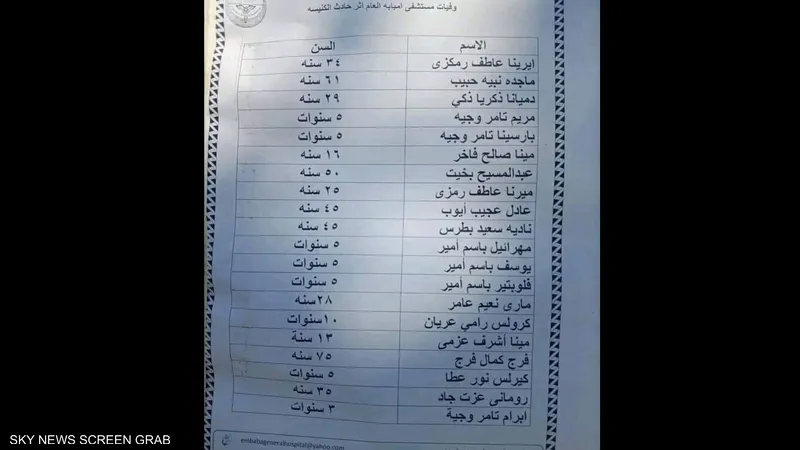 وفيات مستشفى امبابه العام اثر حادث الكنيسه
الاسم السن
ايرينا عاطف رمكزى ٣٤ سنه
ماجده نبيه حبيب ٦١ سنه
دميانا ذكريا ذكي ٢٩ سنه
مريم تامر وجيه ٥ سنوات
بارسينا تامر وجيه ٥ سنوات
مينا صالح فاخر ١٦ سنه
عبدالمسيح بخيت ٥٠ سنه
ميرنا عاطف رمزى ٢٥ سنه
عادل عجيب أيوب ٤٥ سنه
ناديه سعيد بطرس ٤٥ سنه
مهرائيل باسم أمير ٥ سنوات
يوسف باسم أمير ٥ سنوات
فلوبتير باسم أمير ٥ سنوات
مارى نعيم عامر ٢٨سنه
كرولس رامي عريان ١٠سنوات
مينا أشرف عزمى ١٣ سنة
فرج كمال فرج ٧٥ سنه
كيرلس نور عطا ٥ سنوات
رومانى عزت جاد ٣٥ سنه
ابرام تامر وجية ٣ سنوات
embabageneralhospital@yahoo.com
SKY NEWS SCREEN GRAB